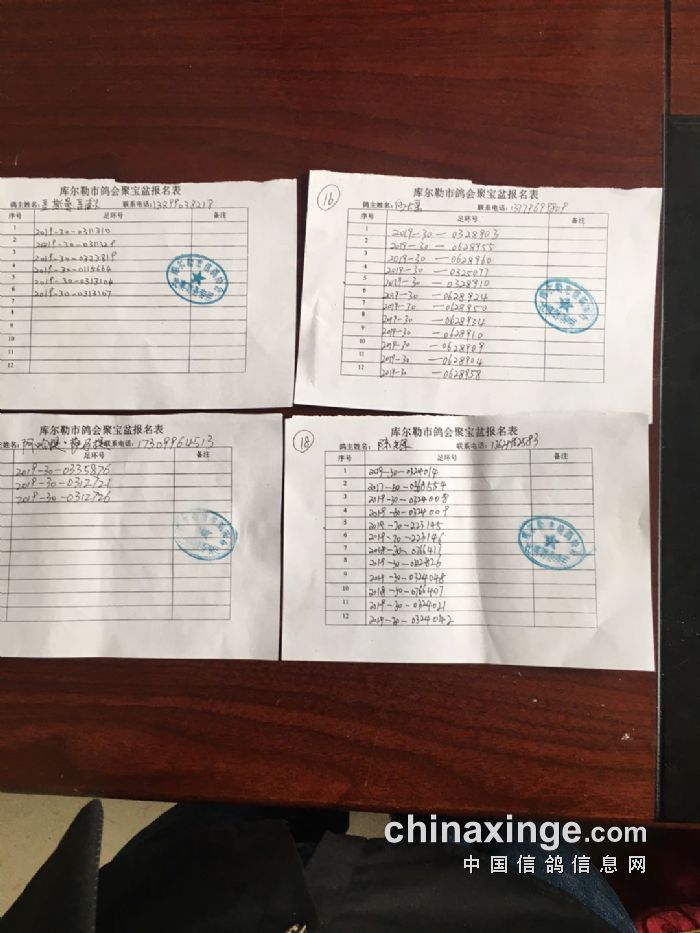 库尔勒市鸽会聚宝盆报名表
鸽主姓名: 联系电话:
序号 足环号 备注
1 2019-30-0311310
2 2019-30-0311329
3 2019-30-0322819
4 2019-30-0115664
5 2019-30-0313104
6 2019-30-0313107
7
8
9
10
11
12
16
库尔勒市鸽会聚宝盆报名表
鸽主姓名: 联系电话:
序号 足环号 备注
1 2019-30-0328903
2 2019-30-0628955
3 2019-30-0628960
4 2019-30-0325077
5 2019-30-0328910
6 2019-30-0628924
7 2019-30-0628950
8 2019-30-0628934
9 2019-30-0628910
10 2019-30-0628909
11 2019-30-0628904
12 2019-30-0628958
库尔勒市鸽会聚宝盆报名表
主姓名: 联系电话:17309964513
足环号 备注
2019-30-0335876
2019-30-0312721
2019-30-0312726
18
库尔勒市鸽会聚宝盆报名表
鸽主姓名: 联系电话:
序号 足环号 备注
1 2019-30-0324014
2
3 2019-30-0324008
4 2019-30-0324009
5 2019-70-223145
6 2019-70-223146
7
8
9 2019-30-0324048
10 2018-30-0766407
11 2019-30-0324021
12 2019-30-0324042
chinaxinge.com
中国信鸽信息网